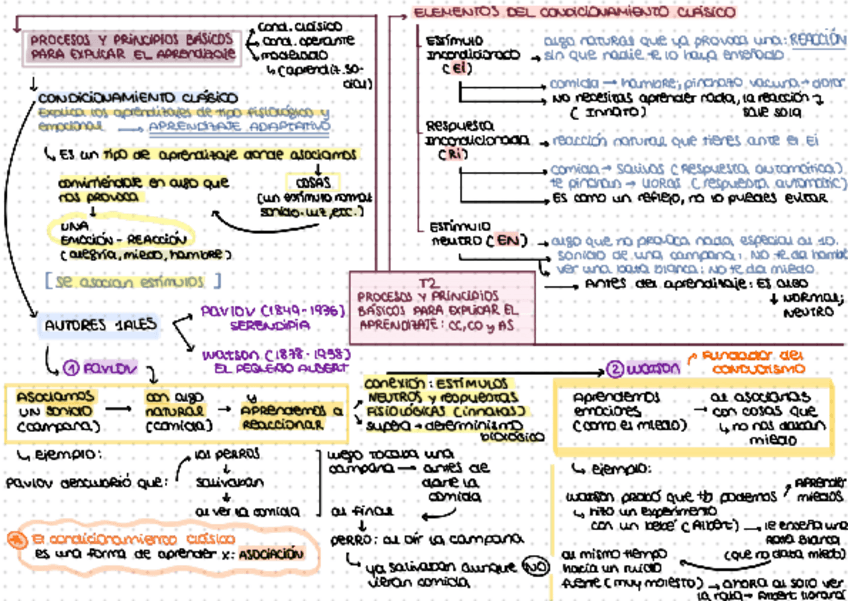 PROCESOS Y PRINCIPIOS BÁSICOS
PARA EXPLICAR EL APRENDIZAJE
Cond. clásico
Cond. operante
modelado
(aprendiz. so-
cial)
CONDICIONAMIENTO CLÁSICO
Explica los aprendizajes de tipo fisiológico y
emocional → APRENDIZAJE ADAPTATIVO
↳ Es un tipo de aprendizaje donde asociamos
COSAS
(un estímulo normal
sonido, luz, etc.)
convirtiéndose en algo que
nos provoca
UNA
EMOCIÓN - REACCIÓN
(alegría, miedo, hambre)
[se asocian estímulos]
AUTORES 1ALES
PAVLOV (1849-1936)
SERENDIPIA
Watson (1878-1958)
EL PEQUEÑO ALBERT
ELEMENTOS DEL CONDICIONAMIENTO CLÁSICO
Estímulo
Incondicionado
(EI)
algo natural que ya provoca una: REACCIÓN
sin que nadie te lo haya enseñado
comida → hambre; pinchazo vacuna → dolor
No necesitas aprender nada, la reacción
(INNATO) sale sola
Respuesta
Incondicionada
(RI)
→ reacción natural que tienes ante el EI
comida → salivas (respuesta automática)
te pinchan → lloras (respuesta automatic)
Es como un reflejo, no lo puedes evitar
Estímulo
neutro (EN)
→ algo que no provoca nada especial al 10.
sonido de una campana: NO te da hambre
ver una bata blanca: no te da miedo
→ Antes del aprendizaje: Es algo
↓ normal,
NEUTRO
T2
PROCESOS Y PRINCIPIOS
BÁSICOS PARA EXPLICAR EL
APRENDIZAJE: CC, CO y AS
① PAVLOV
ASOCIAMOS
UN sonido
(campana)
con algo
natural
(comida)
y
APRENDEMOS a
REACCIONAR
conexión: ESTÍMULOS
NEUTROS y respuestas
FISIOLÓGICAS (innatas)
supera → determinismo
biológico
↳ ejemplo:
PAVLOV descubrió que:
los PERROS
salivaban
al ver la comida
luego tocaba una
campana → antes de
darle la
comida
al final
PERRO: al oír la campana
↳ ya salivaban aunque NO
vieran comida
El condicionamiento clásico
es una forma de aprender x: ASOCIACIÓN
② Watson
Fundador del
conductismo
Aprendemos
emociones
(como el miedo)
al asociarlas
con cosas que
↳ no nos daban
miedo
↳ ejemplo:
Watson probó que tb podemos APRENDER
miedos
↳ hizo un experimento
con un bebé (Albert) → le enseña una
rata blanca
(que no daba miedo)
al mismo tiempo
hacía un ruido
fuerte (muy molesto) → ahora al solo ver
la rata → Albert lloraba